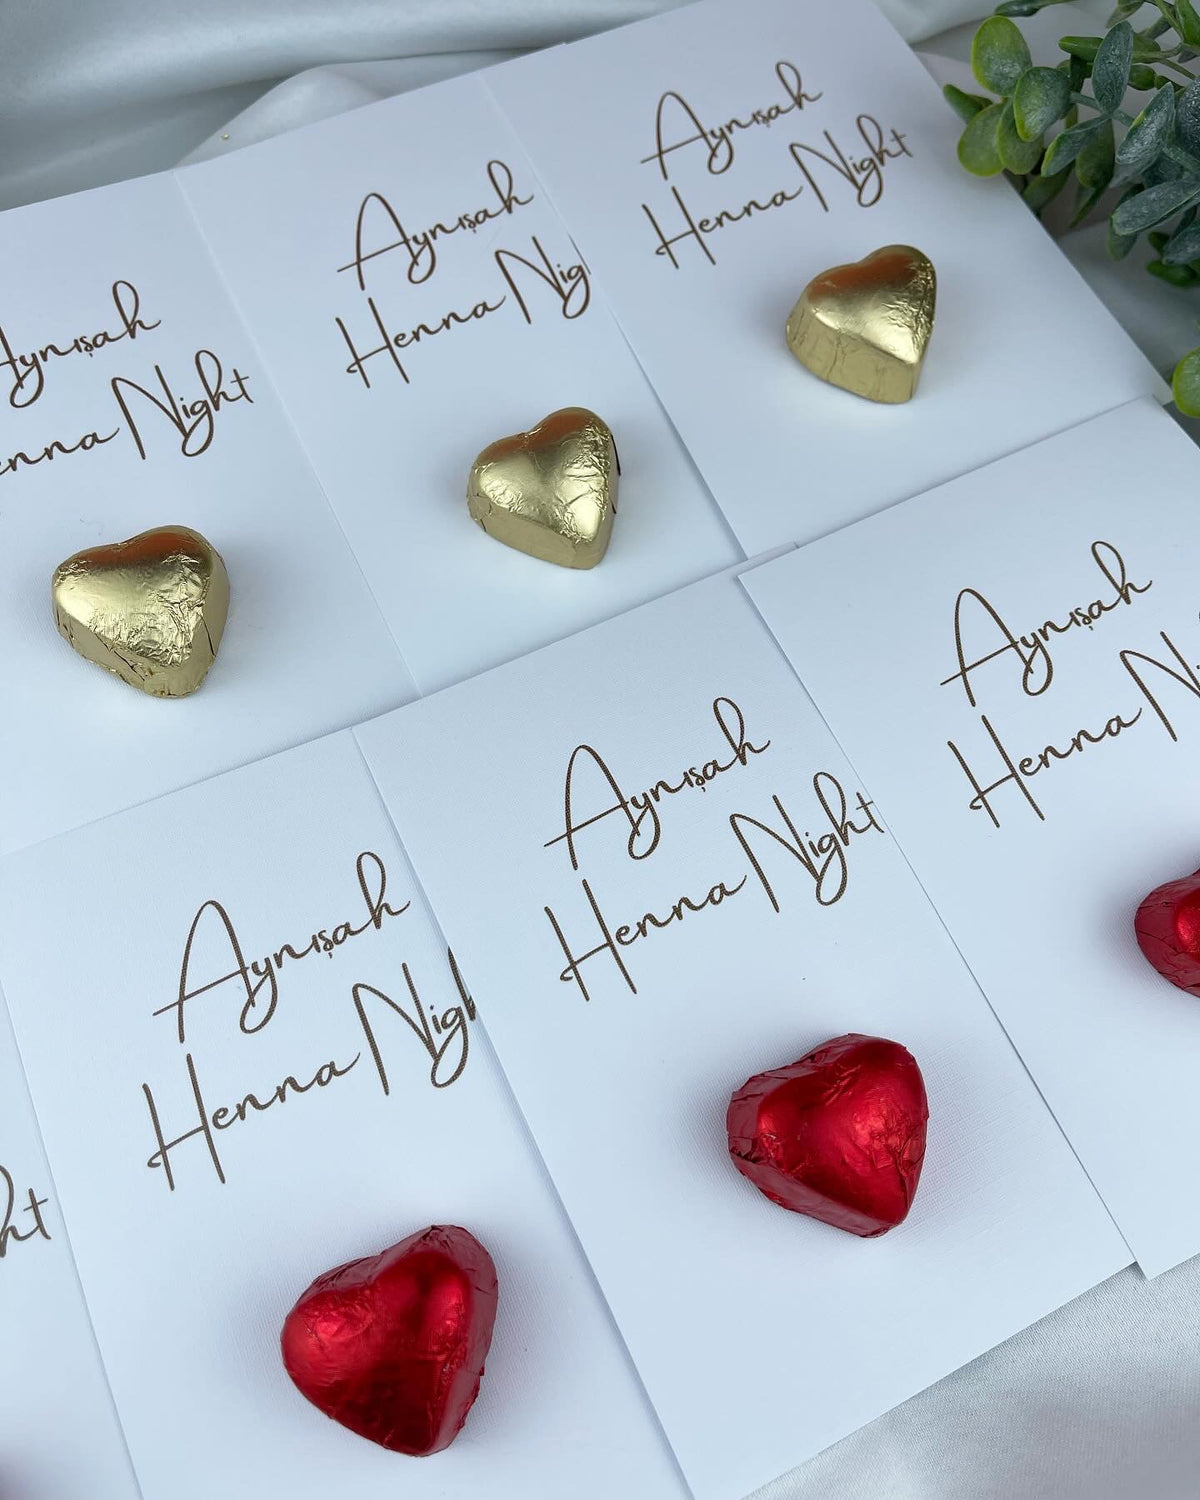 Aynışah
Henna Night
Aynışah
Henna Nig
Aynışah
Henna Night
Aynışah
Henna Nigh
Aynışah
Henna Night
Aynışah
Henna N
ht